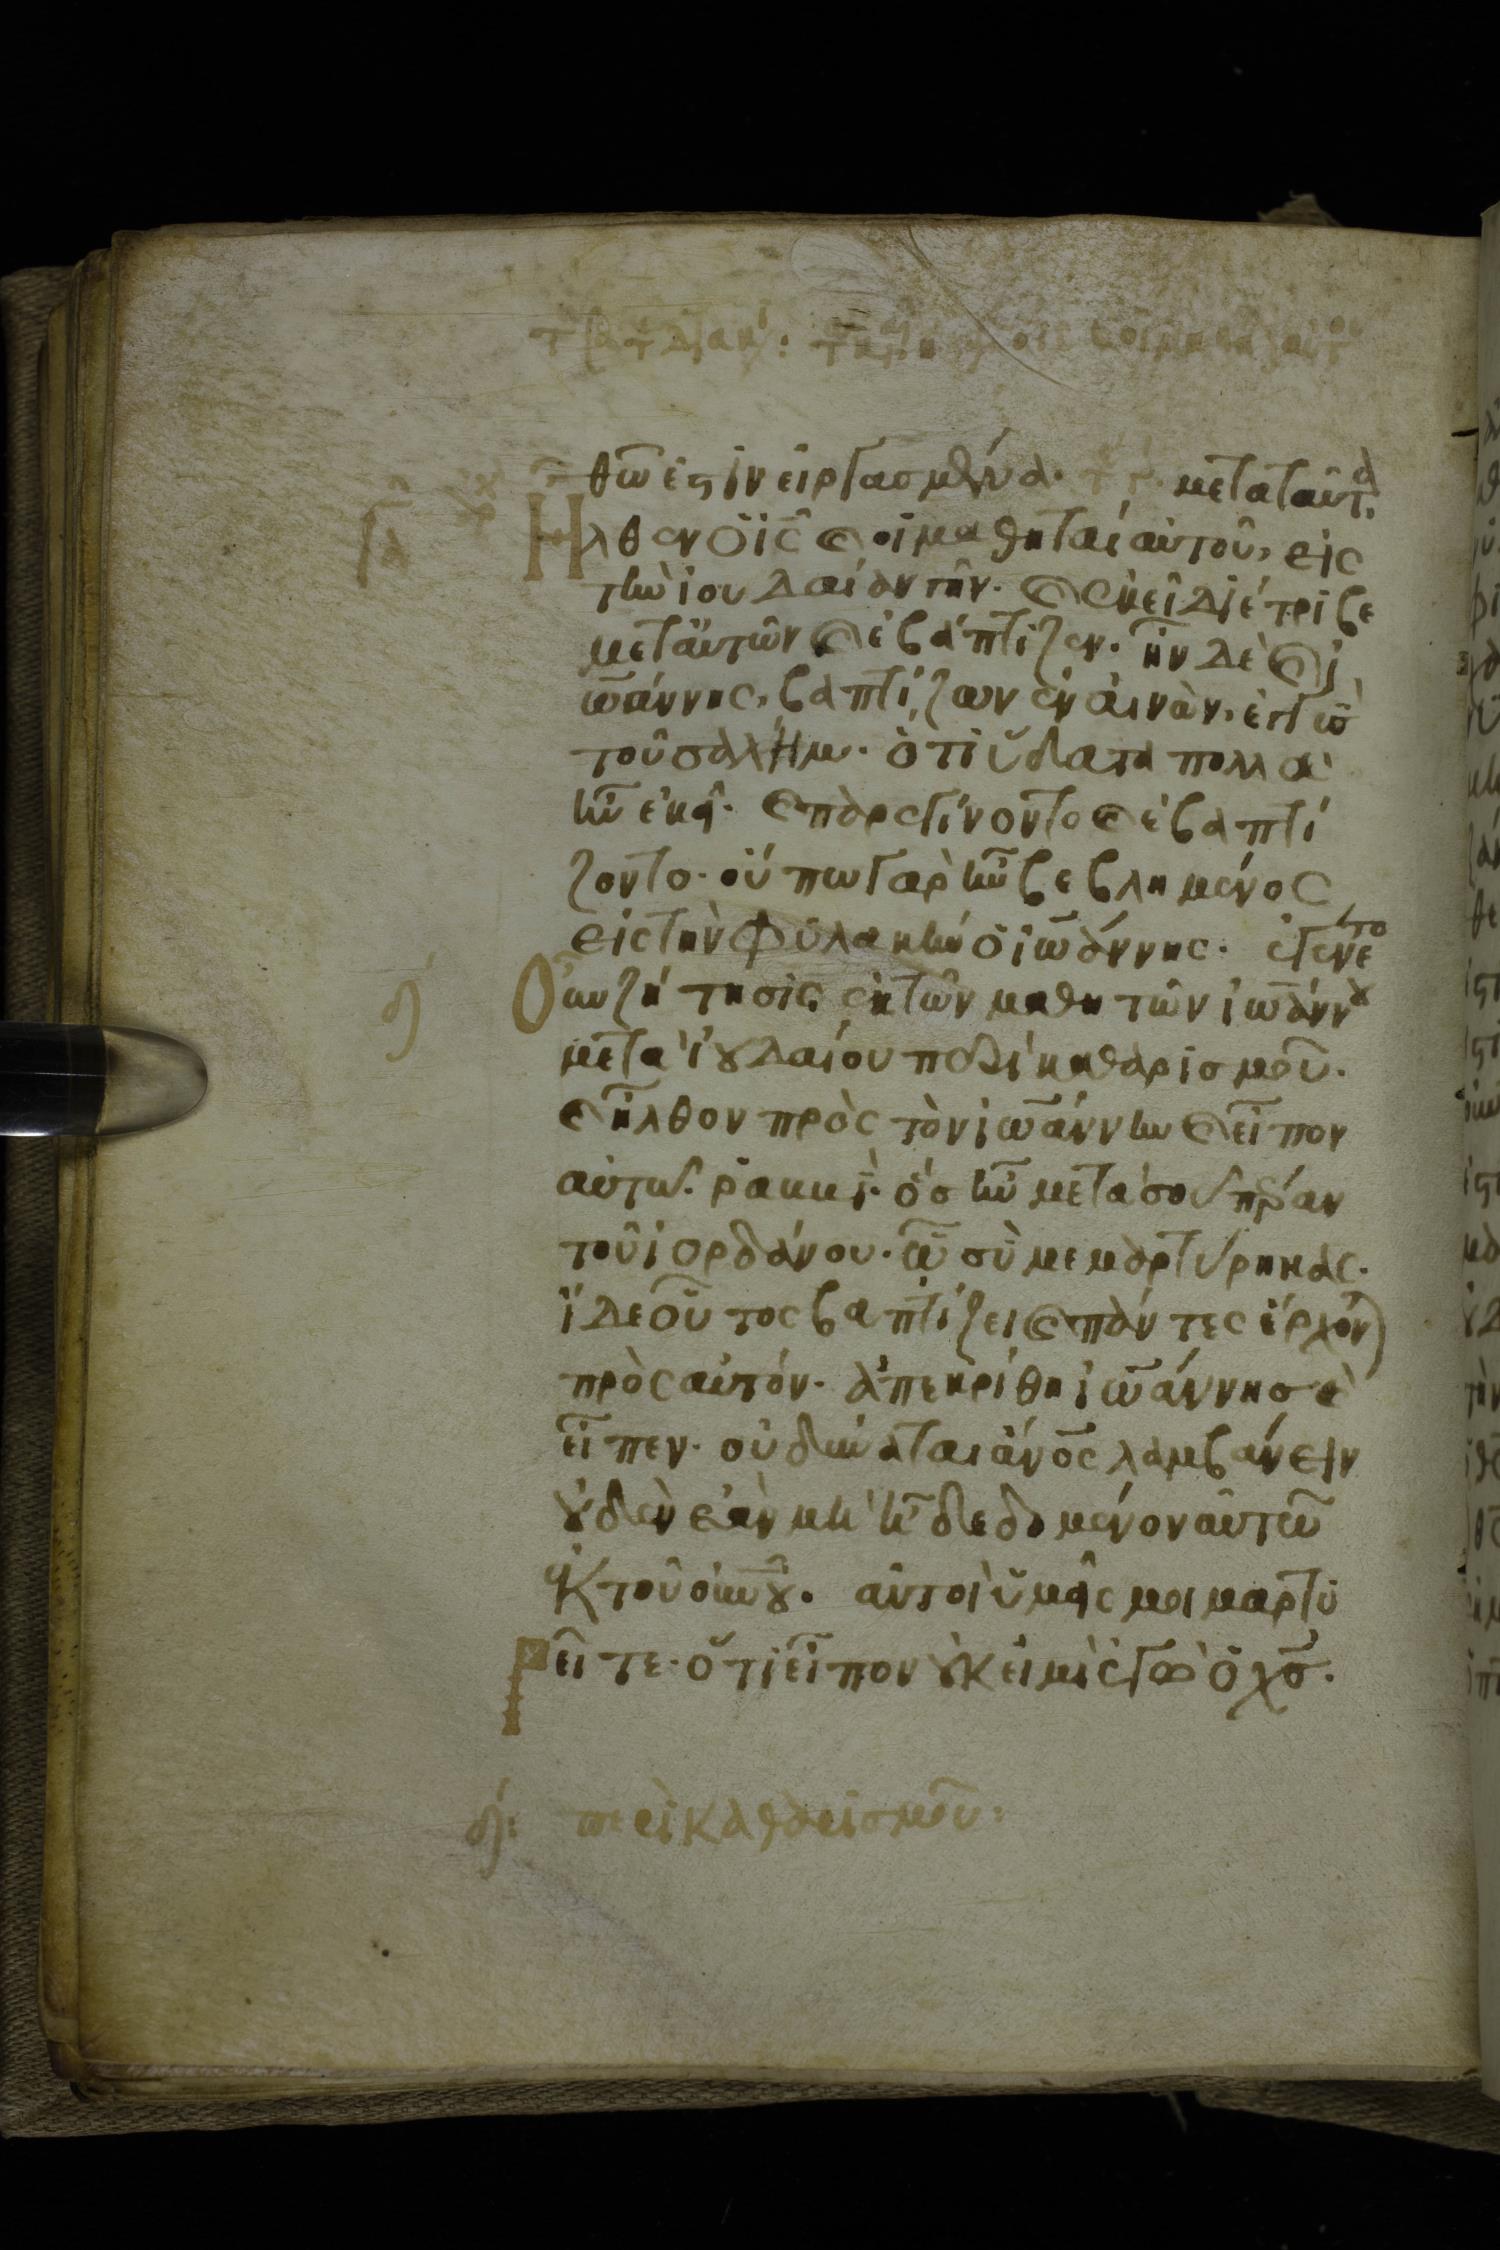 θῶ ἐςὶν εἰργασμένα· μετὰ ταῦτα
Ηλθεν ὁ ις̅ κ οἱ μαθηταὶ αὐτοῦ, εἰς
τὴν ἰουδαίαν γῆν· κ ἐκεῖ διέτριβε
μετ αὐτῶν κ ἐβάπτιζεν· ἦν δὲ κ ἰ
ωάννης, βαπτίζων ἐν αἰνὼν, ἐγγὺς
τοῦ σαλὴμ· ὅτι ὕδατα πολλὰ
ἦν ἐκεῖ· κ παρεγίνοντο κ ἐβαπτί
ζοντο· οὔπω γὰρ ἦν βεβλημένος
εἰς τὴν φυλακὴν ὁ ἰωάννης· ἐγένετο
Οὖν ζήτησις ἐκ τῶν μαθητῶν ἰωάννου
μετὰ ἰουδαίου περὶ καθαρισμοῦ·
κ ἦλθον πρὸς τὸν ἰωάννην κ εἶπον
αὐτῶ· ῥαββί· ὃς ἦν μετὰ σοῦ πέραν
τοῦ ἰορδάνου· ὧ σὺ μεμαρτύρηκας·
ἴδε οὗτος βαπτίζει κ πάντες ἔρχον)
πρὸς αὐτόν· ἀπεκρίθη ἰωάννης κ
εἶπεν· οὐ δύναται ἄνος̅ λαμβάνειν
οὐδὲν ἐὰν μὴ ἦ δεδομένον αὐτῶ
ἐκ τοῦ οὐνου̅· αὐτοὶ ὑμεῖς μοι μαρτυ
Ρεῖτε· ὅτι εἶπον οὐκ εἰμὶ ἐγὼ ὁ χς̅·
η: περὶ καθαρισμοῦ: